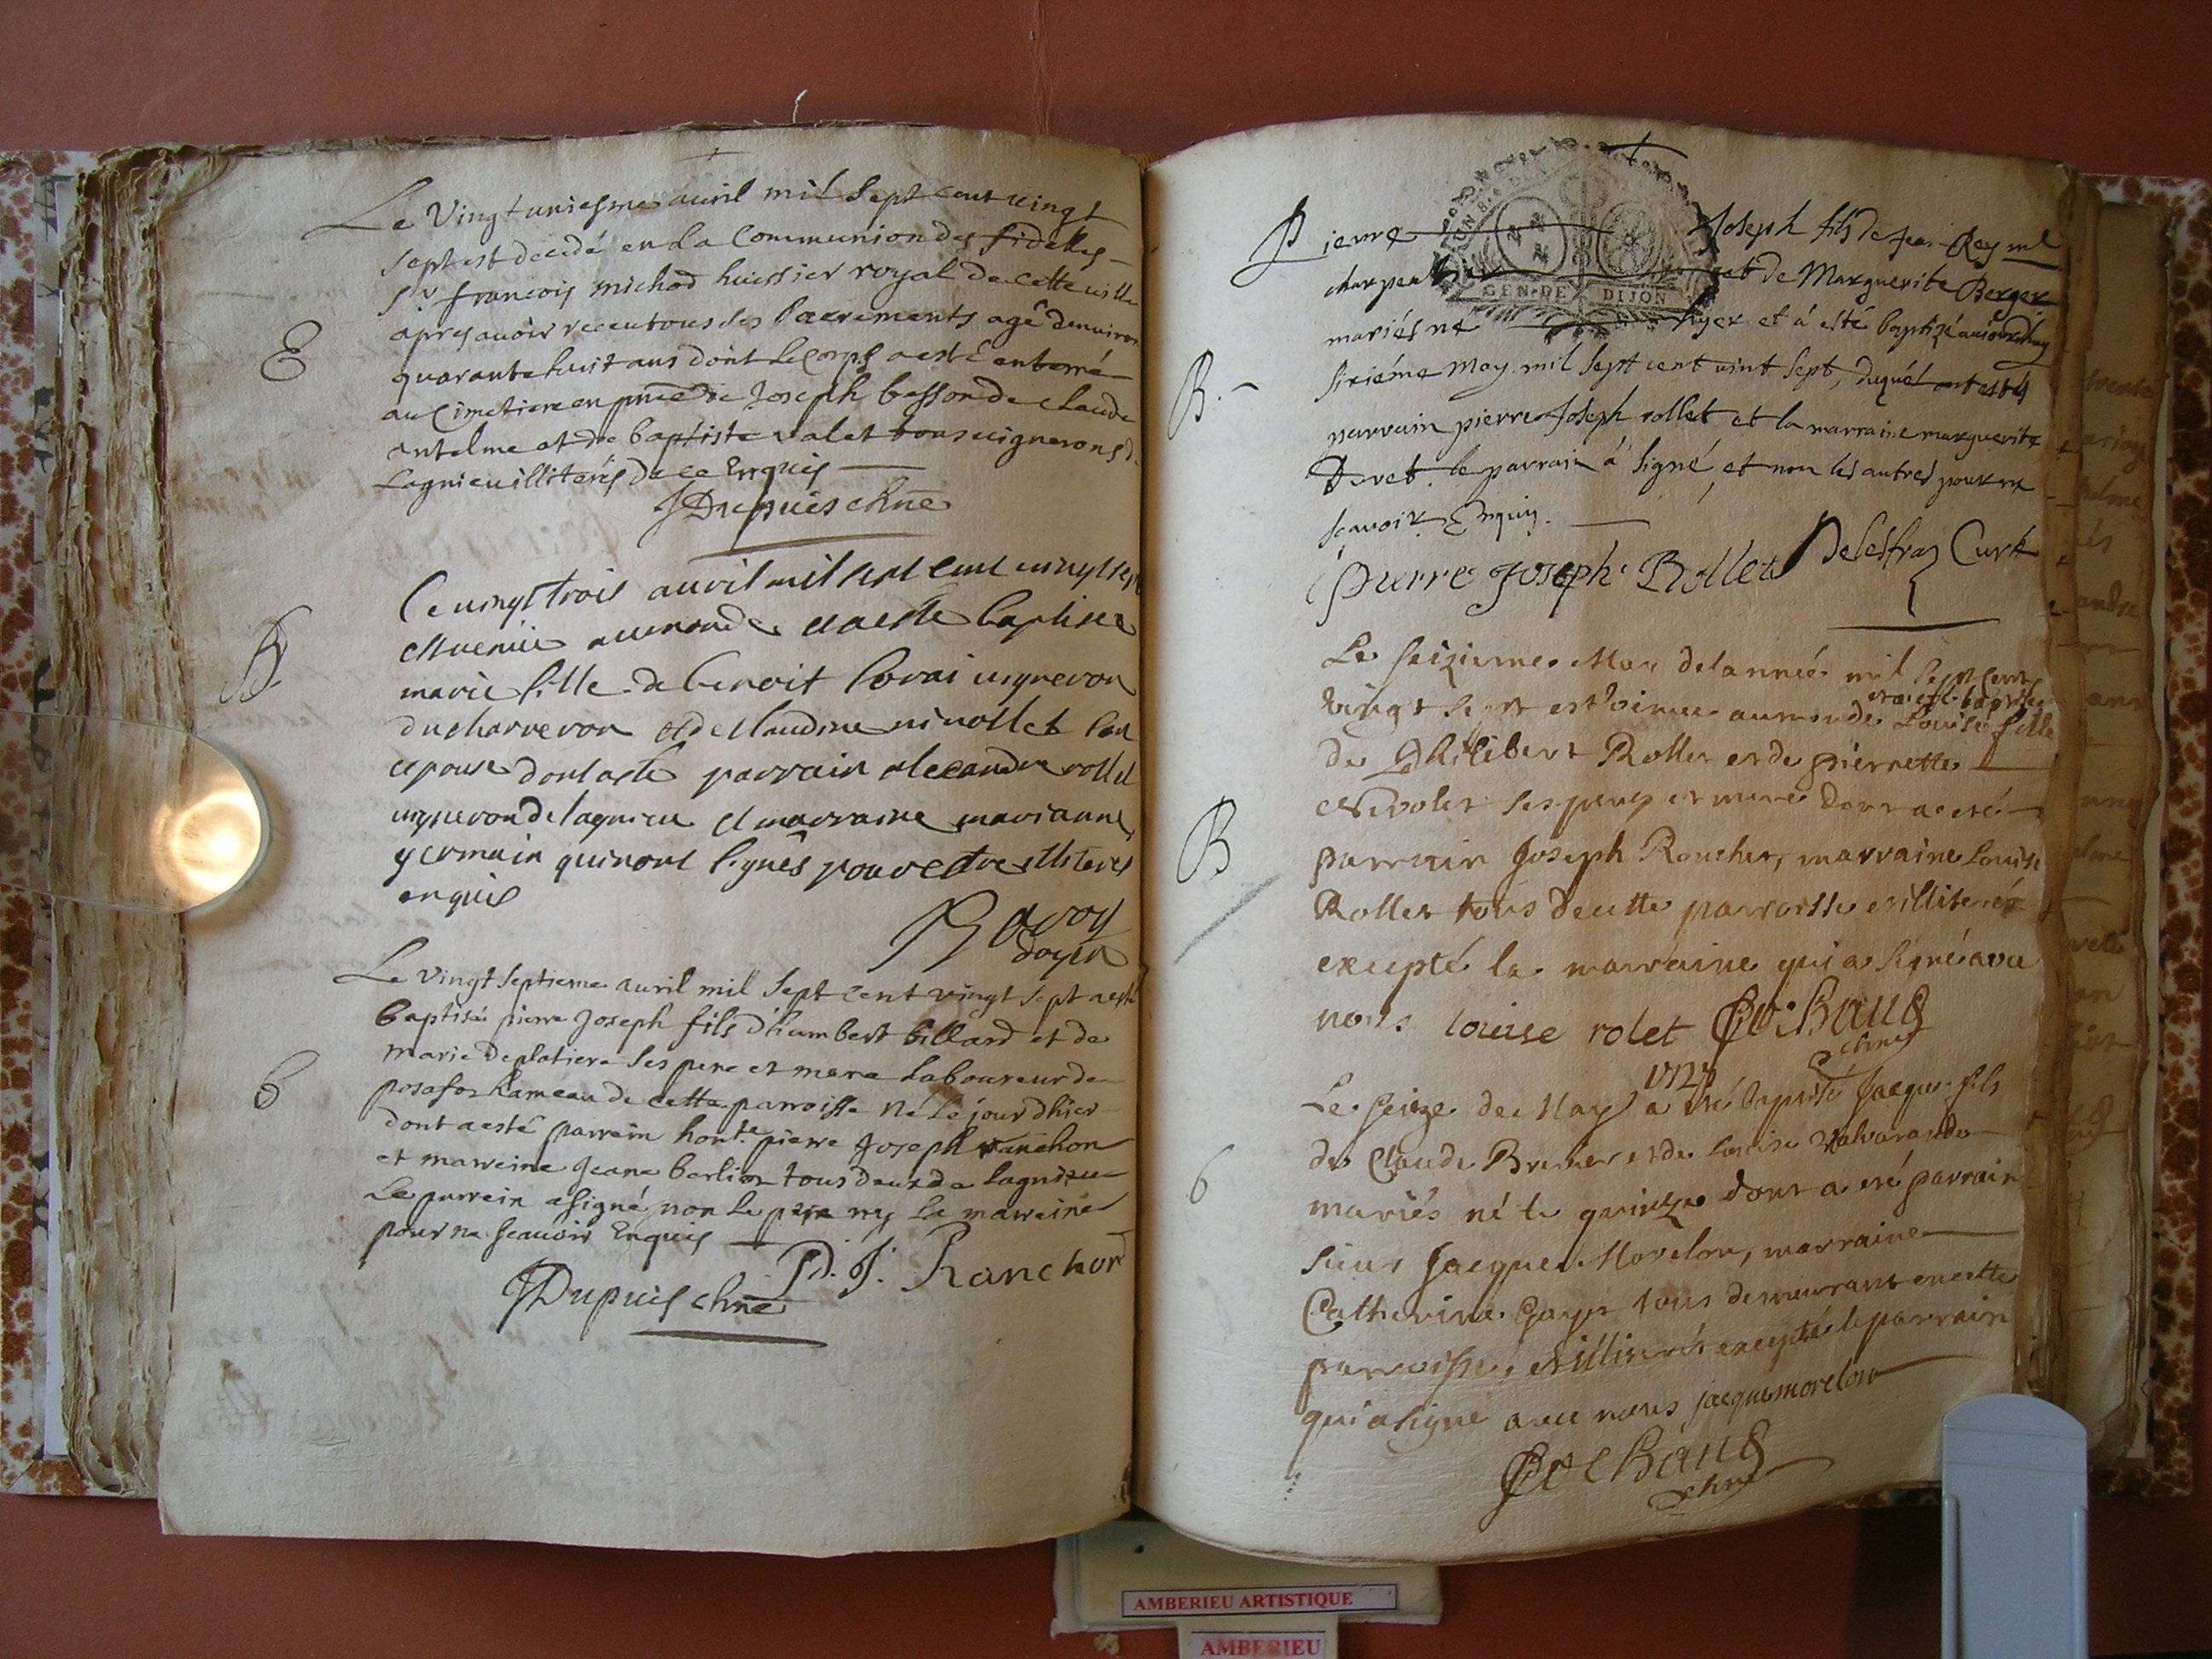 Le Vingt uniesme auril mil sept cent vingt
sept est decedé en La Communion des fidelles
Sr. francois michod huissier royal de cette ville
apres auoir receu tous les Sacrements agé denuiron
quarante huit ans dont le corps a esté enterré
au Cimetiere en pnce de Joseph besson de claude
antelme et de baptiste valet tous vignerons de
Lagnieu illiterés de ce Enquis
E
JDupuis chne
Ce vingt trois auvril mil sept cent vingt sept
est venüe au monde et a esté baptisée
marie fille de benoit
du charveron et de claudine nivollet son
epouse dont a esté parrain alexandre rollet
vigneron de lagnieu et marraine marianne
germain qui n'ont signés pour estre illiterés
enquis
B
doyen
Le vingt septieme auril mil sept cent vingt sept a esté
baptisé pierre Joseph fils d'humbert billard et de
marie deplatiere ses pere et mere Laboureur de
posafol hameau de cette parroisse né Le jour d'hier
dont a esté parrein hont.e pierre Joseph ranchon
et marreine Jeane berlion tous deux de Lagnieu
Le parrein a signé non Le pere ny La marreine
pour ne sçauoir Enquis
P. J. Ranchon
JDupuis chne
GEN. DE DIJON
Pierre Joseph fils de Jean Rey ml
charpentier et de Marguerite Berger
mariés né hyer et á esté baptizé aujourdhuy
sixiéme may mil sept cent vint sept, duquél ont estés
B.
parrain pierre Joseph rollet et la marraine marguerite
le parrain á signé, et non les autres pour ne
scavoir Enquis.
Pierre Joseph Rollet Delesfraz Curé
Le seizieme May de l'année mil sept cent
et a esté baptisée
vingt sept est venue au monde Louise fille
de Philibert Rollet et de pierrette
Nivolet ses pere et mere dont a eté
B
parrain Joseph Roucher, marraine Louise
Rollet tous de cette parroisse et illiterés
excepté la marraine qui a signé avec
nous louise rolet
chne
1727
Le seize de May a été baptisé Jacque fils
de Claude Brunier et de Louise
6
mariés né le quinze dont a été parrain
sieur Jacque Morelon, marraine
Catherine Goyet tous demeurant en cette
parroisse, et illiterés excepté le parrain
qui a signé avec nous jacque morelon
chne
AMBERIEU ARTISTIQUE
AMBERIEU